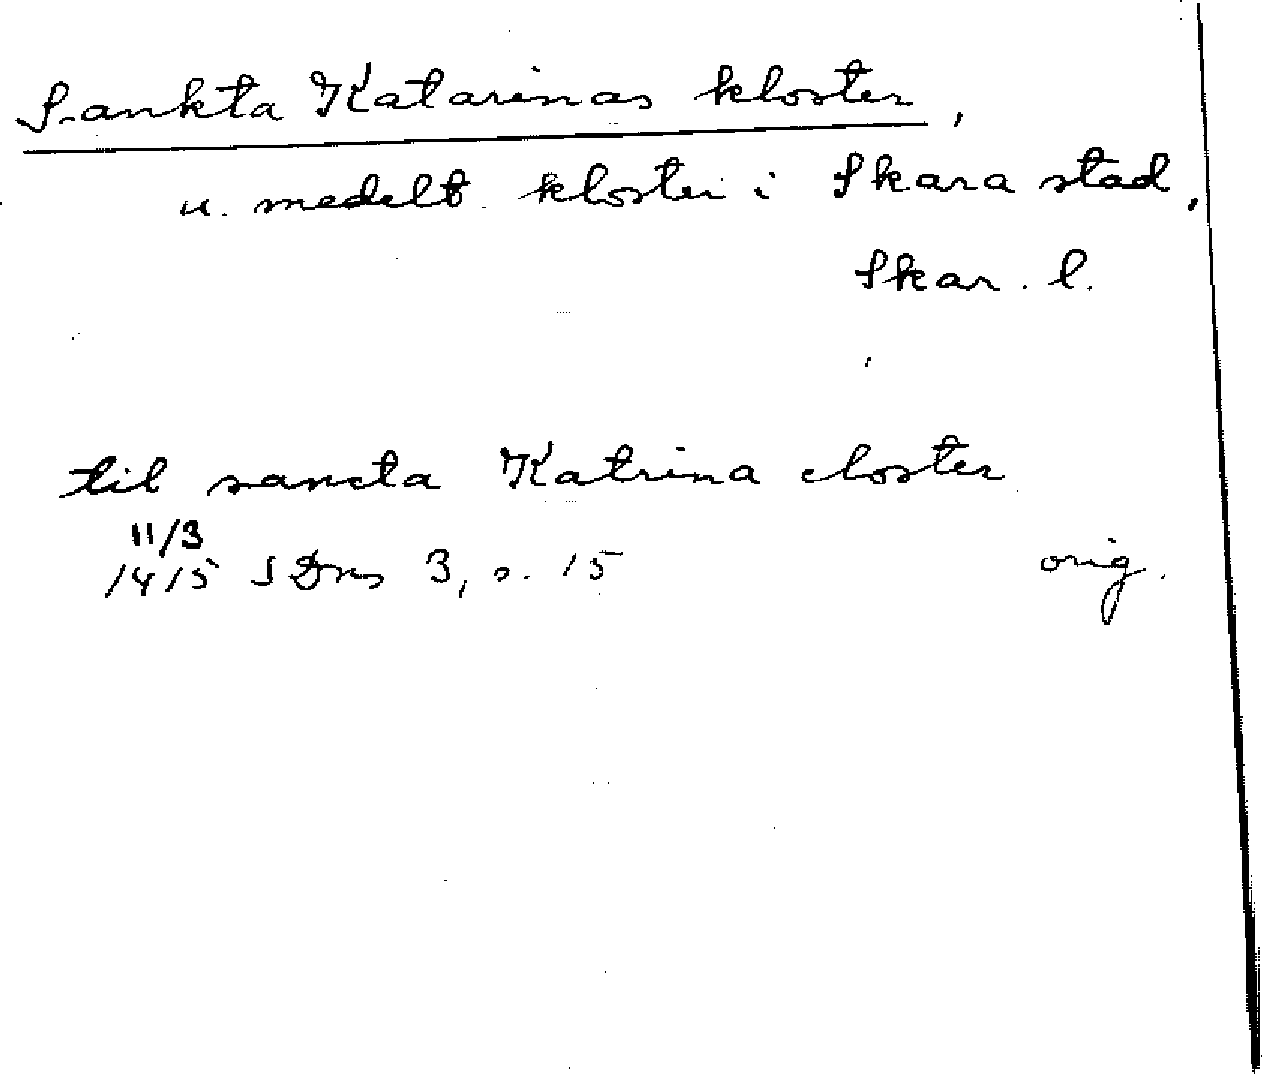 Sankta Katarinas kloster,
u. medelt. kloster i Skara stad,
Skar. l.
til sancta Katrina closter
11/3
1415 SDns 3, s. 15 orig.